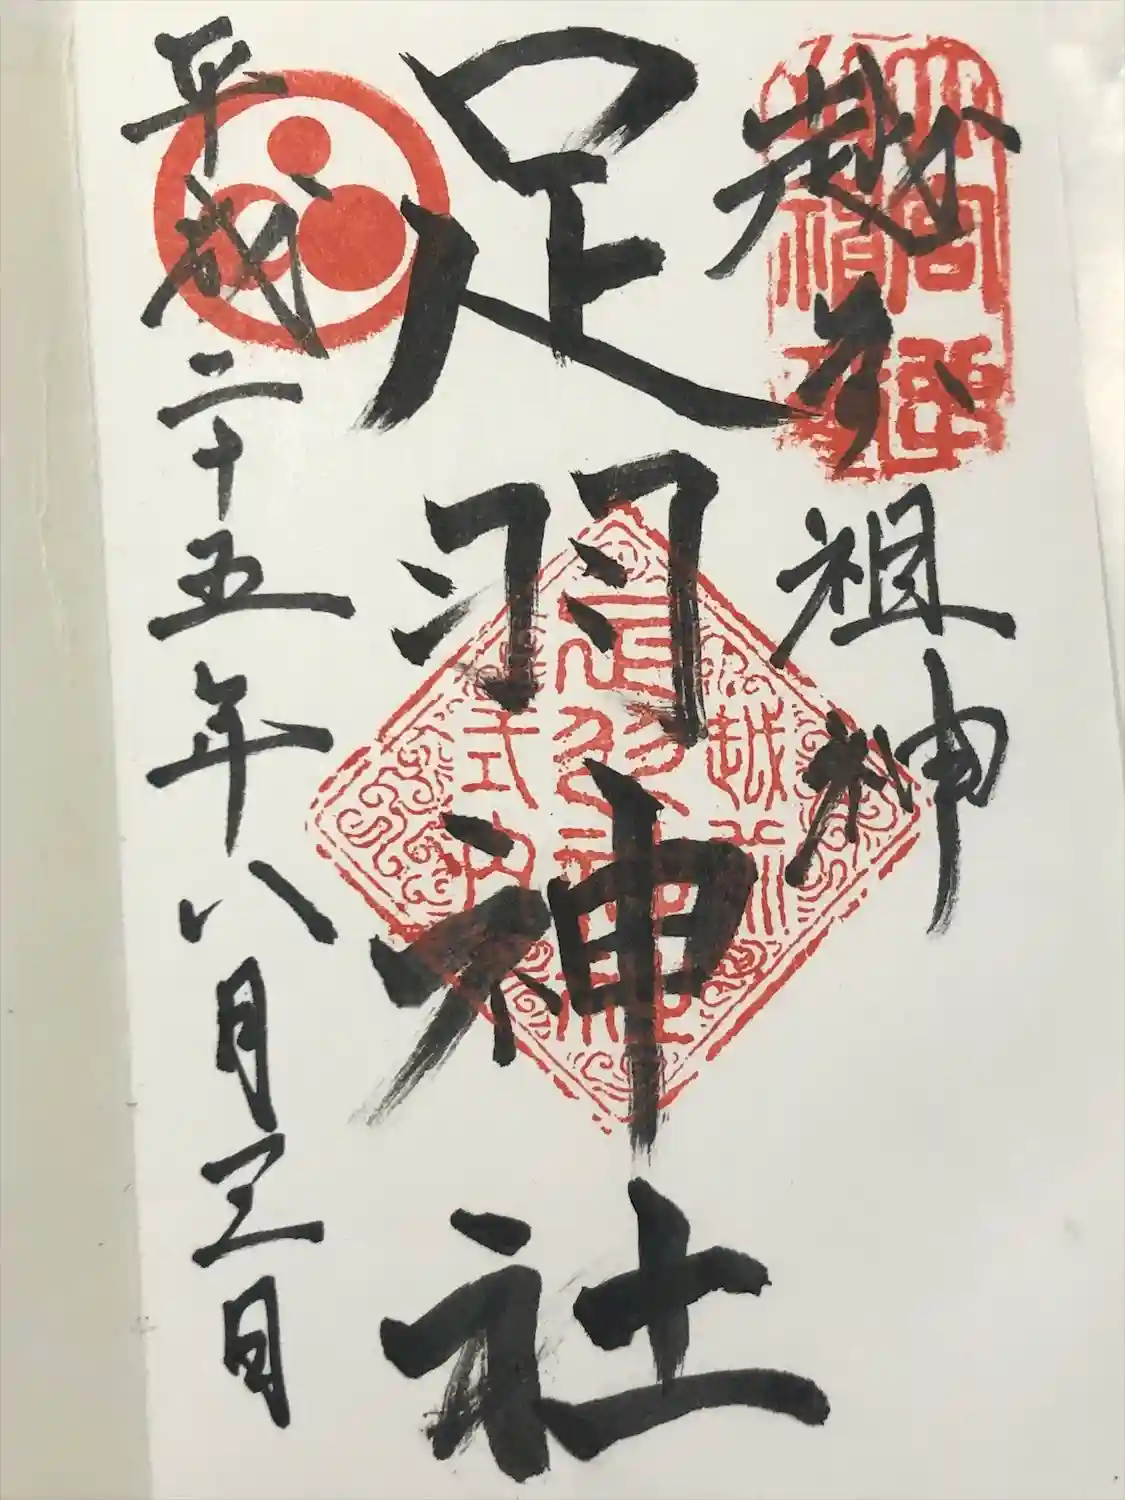 越前祖神
足羽神社
平成二十五年八月三日
越前
足羽神社
式内